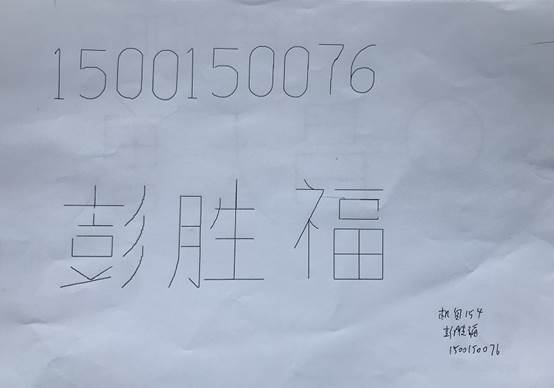 1500150076
彭胜福
机自154
彭胜福
1500150076